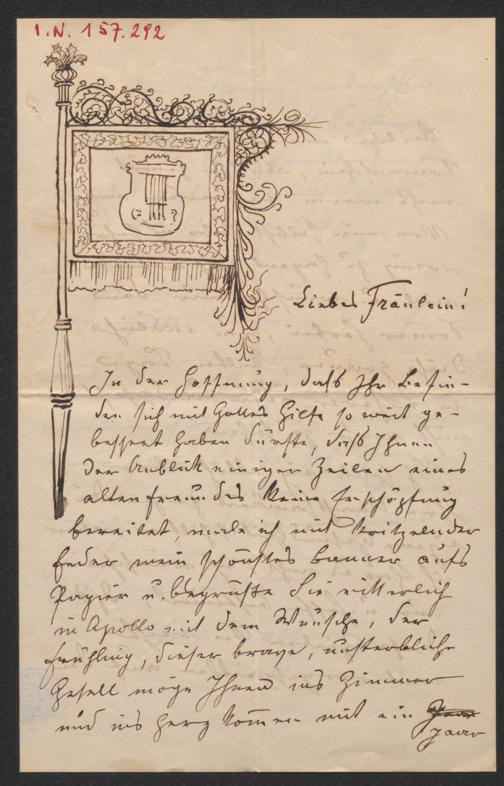 I.N. 157.292
Liebes Fräulein!
In der Hoffnung, daß Ihr Befin-
den sich mit Gottes Hilfe so weit ge-
bessert haben dürfte, daß Ihnen
der Anblick einiger Zeilen eines
alten Freundes keine Erschöpfung
bereitet, male ich mit kritzelnder
Feder mein schönstes Banner aufs
Papier u. begrüße Sie ritterlich
in Apollo mit dem Wunsche, der
Frühling, dieser brave, unsterbliche
Gesell möge Ihnen ins Zimmer
und ins Herz kommen mit ein
paar